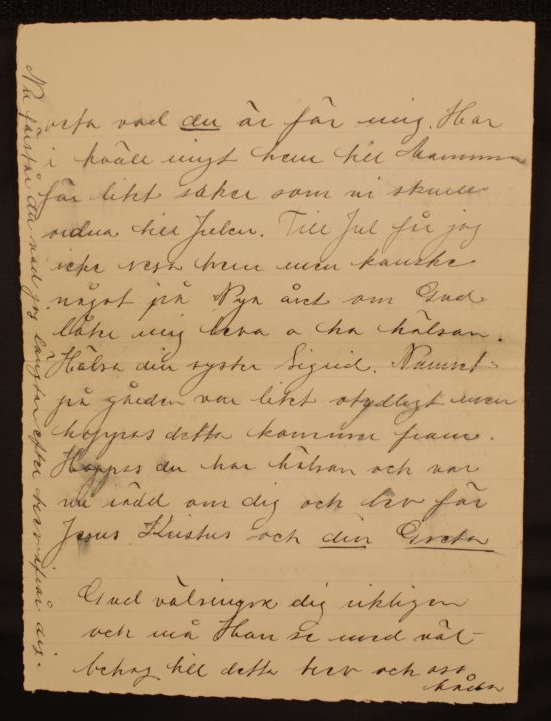 veta vad du är för mig. Har
i kväll ringt hem till Mamma
för litet saker som vi skulle
ordna till Julen. Till Jul får jag
icke resa hem men kanske
något på Nya året om Gud
låter mig leva o ha hälsan.
Hälsa din syster Sigrid. Namnet
på gården var litet otydligt men
hoppas detta kommer fram.
Hoppas du har hälsan och var
nu rädd om dig och lev för
Jesus Kristus och din Greta
Gud välsingne dig rikligen
och må Han se med väl-
behag till detta brev och oss
båda
Nu förstår du vad jag längtar efter brev ifrån dig.